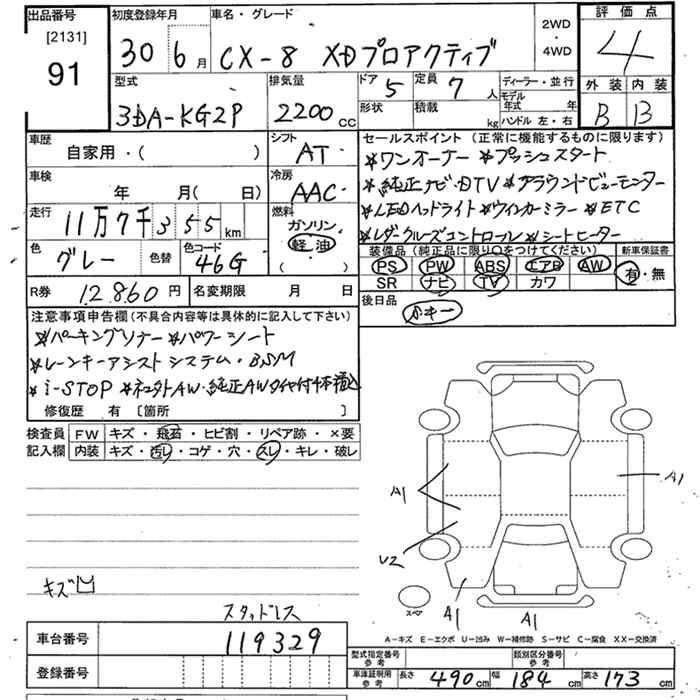 出品番号 初度登録年月 車名・グレード 2WD ・ 4WD 評価点
[2131]
91 30 6月 CX-8 XDプロアクティブ 4
型式 排気量 ドア 5 定員 7人 ディーラー・並行 外装 内装
3DA-KG2P 2200cc 形状 積載 kg モデル年式 年 B B
ハンドル 左・右
車歴 シフト セールスポイント (正常に機能するものに限ります)
自家用・( ) AT *ワンオーナー *プッシュスタート
車検 冷房 *純正ナビ・DTV*アラウンドビューモニター
年 月( 日) AAC *LEDヘッドライト*ウィンカーミラー*ETC
走行 燃料 *レダークルーズコントロール*シートヒーター
11万7千355km ガソリン 装備品 (純正品に限り○をつけてください) 新車保証書
色 色替 色コード 軽油 PS PW ABS エアB AW 有・無
グレー 46G ( ) SR ナビ TV カワ
R券 12,860円 名変期限 月 日 後日品
注意事項申告欄(不具合内容等は具体的に記入して下さい) スペアキー
*パーキングソナー*パワーシート
*レーンキープアシストシステム・BSM
*i-STOP *社外AW・純正AWタイヤ付4本積込
修復歴 有 〔箇所 〕
検査員 FW キズ・飛石・ヒビ割・リペア跡・×要
記入欄 内装 キズ・汚れ・コゲ・穴・スレ・キレ・破レ
A1 A1
U2
キズ
スペア A1 A1
スタッドレス
A-キズ E-エクボ U-凹み W-補修跡 S-サビ C-腐食 XX-交換済
車台番号 119329
型式指定番号 参考 類別区分番号 参考
登録番号 車庫証明用 参考 長さ 490cm 幅 184cm 高さ 173cm